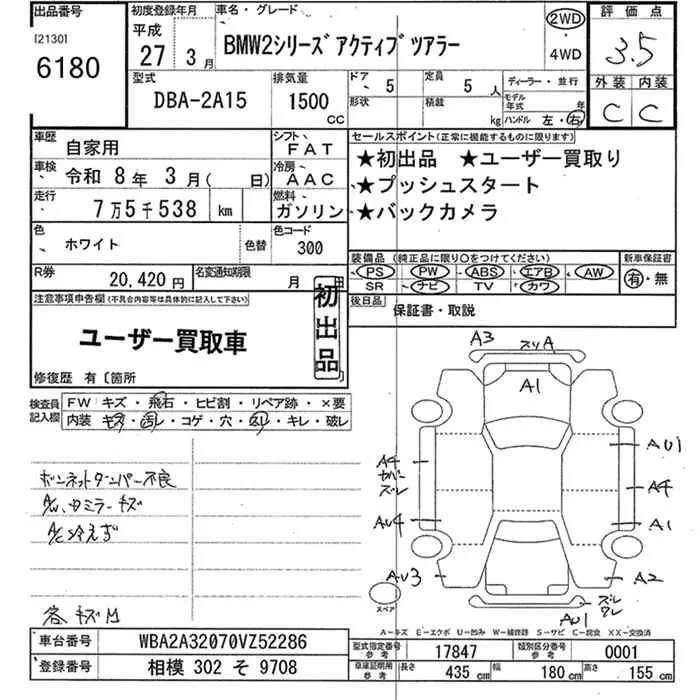 出品番号
[2130]
6180
初度登録年月
平成
27年 3月
車名・グレード
BMW2シリーズ アクティブ ツアラー
2WD
・
4WD
評価点
3.5
外装 内装
C C
型式
DBA-2A15
排気量
1500
CC
ドア 5
形状
定員 5人
積載 kg
ディーラー・並行
モデル年式 年
ハンドル 左・右
車歴 自家用
シフト FAT
車検 令和 8年 3月( 日)
冷房 AAC
走行 7万5千538 km
燃料 ガソリン
色 ホワイト 色替
色コード 300
R券 20,420円
名変通知期限 月 日
セールスポイント(正常に機能するものに限ります)
★初出品 ★ユーザー買取り
★プッシュスタート
★バックカメラ
装備品 (純正品に限り○をつけてください)
PS PW ABS エアB AW
SR ナビ TV カワ
新車保証書
有・無
後日品 保証書・取説
注意事項申告欄(不具合内容等は具体的に記入して下さい)
ユーザー買取車
初出品
修復歴 有〔箇所
検査員記入欄
FW キズ・飛石・ヒビ割・リペア跡・×要
内装 キズ・汚レ・コゲ・穴・凹リ・キレ・破レ
ボンネットダンパー不良
A/C冷えず
各キズ凹
A3
スリA
A1
AU1
A4
カバーズレ
A4
AU4
A1
AU3
A2
スペア
ズレ
ワレ
AU1
A-キズ E-エクボ U-凹み W-補修跡 S-サビ C-腐食 XX-交換済
車台番号 WBA2A32070VZ52286
登録番号 相模 302 そ 9708
型式指定番号 参考 17847
類別区分番号 参考 0001
車庫証明用 参考 長さ 435 cm 幅 180 cm 高さ 155 cm